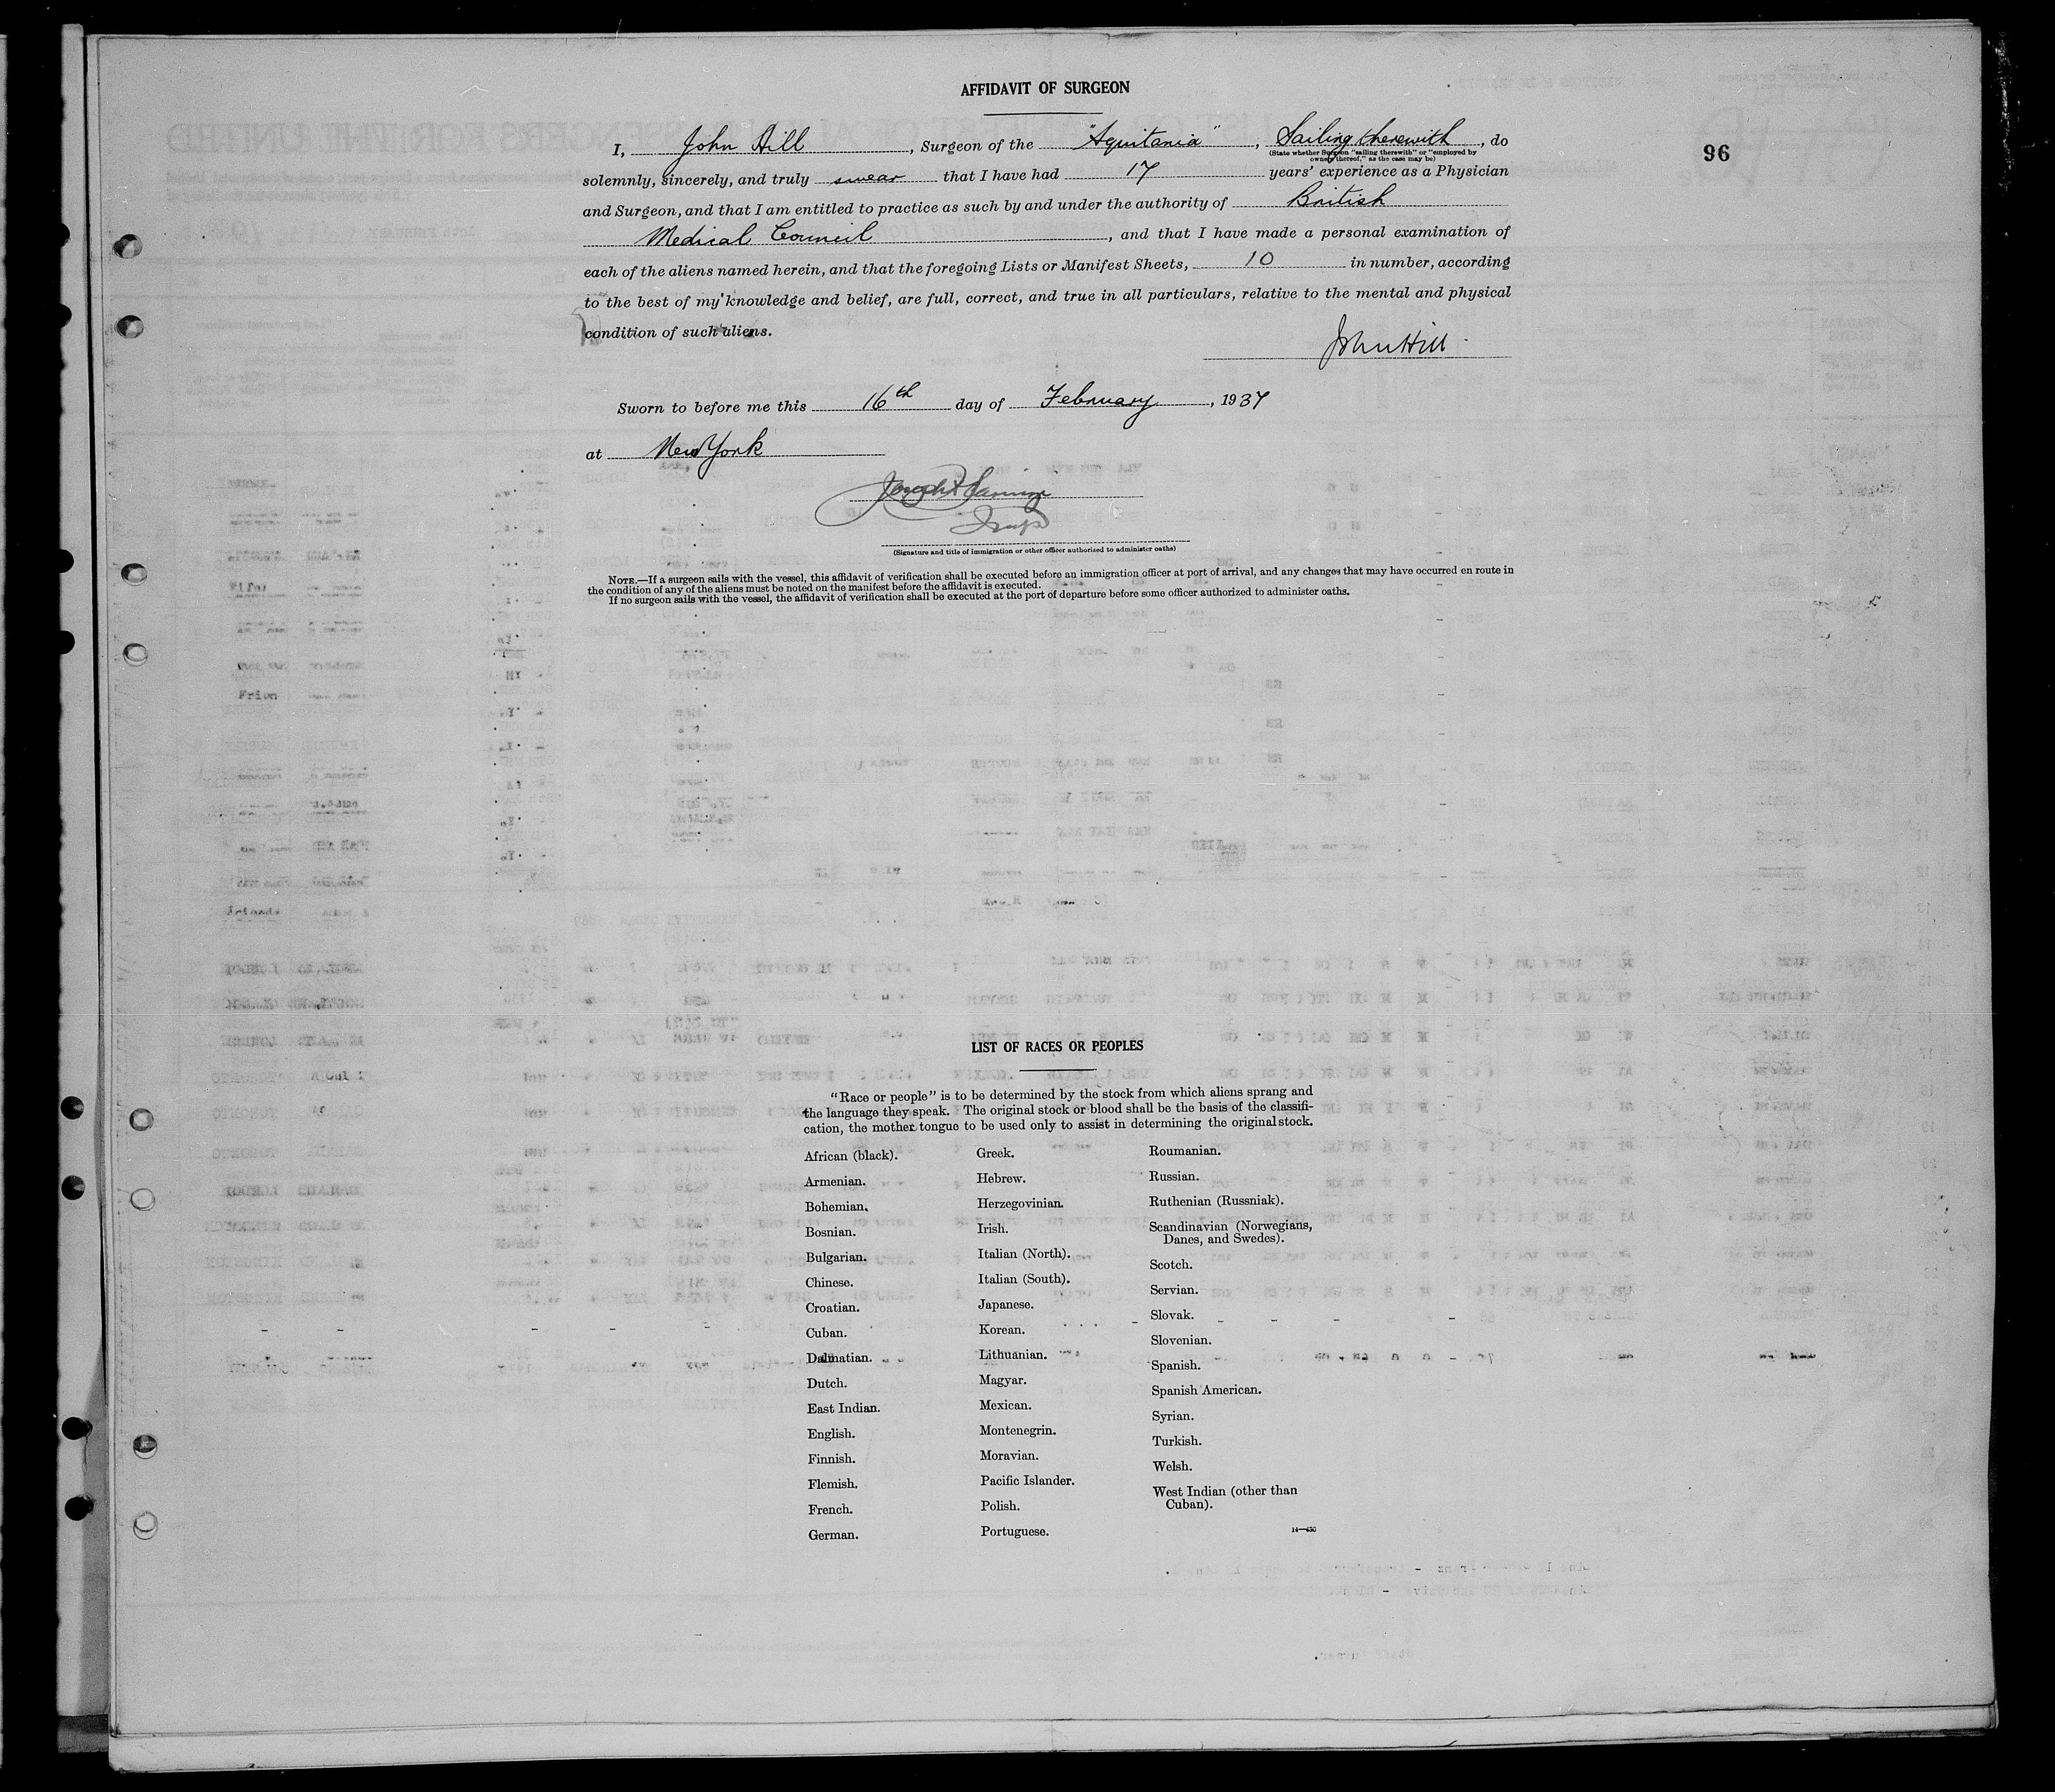 AFFIDAVIT OF SURGEON
96
I, John Hill, Surgeon of the "Aquitania", Sailing therewith, do
(State whether Surgeon "sailing therewith" or "employed by
owners thereof," as the case may be)
solemnly, sincerely, and truly swear that I have had 17 years' experience as a Physician
and Surgeon, and that I am entitled to practice as such by and under the authority of British
Medical Council, and that I have made a personal examination of
each of the aliens named herein, and that the foregoing Lists or Manifest Sheets, 10 in number, according
to the best of my knowledge and belief, are full, correct, and true in all particulars, relative to the mental and physical
condition of such aliens.
John Hill.
Sworn to before me this 16th day of February, 1937
at New York
Insp
(Signature and title of immigration or other officer authorized to administer oaths)
NOTE.—If a surgeon sails with the vessel, this affidavit of verification shall be executed before an immigration officer at port of arrival, and any changes that may have occurred en route in
the condition of any of the aliens must be noted on the manifest before the affidavit is executed.
If no surgeon sails with the vessel, the affidavit of verification shall be executed at the port of departure before some officer authorized to administer oaths.
LIST OF RACES OR PEOPLES
"Race or people" is to be determined by the stock from which aliens sprang and
the language they speak. The original stock or blood shall be the basis of the classifi-
cation, the mother tongue to be used only to assist in determining the original stock.
African (black).
Armenian.
Bohemian.
Bosnian.
Bulgarian.
Chinese.
Croatian.
Cuban.
Dalmatian.
Dutch.
East Indian.
English.
Finnish.
Flemish.
French.
German.
Greek.
Hebrew.
Herzegovinian.
Irish.
Italian (North).
Italian (South).
Japanese.
Korean.
Lithuanian.
Magyar.
Mexican.
Montenegrin.
Moravian.
Pacific Islander.
Polish.
Portuguese.
Roumanian.
Russian.
Ruthenian (Russniak).
Scandinavian (Norwegians,
Danes, and Swedes).
Scotch.
Servian.
Slovak.
Slovenian.
Spanish.
Spanish American.
Syrian.
Turkish.
Welsh.
West Indian (other than
Cuban).
14—430